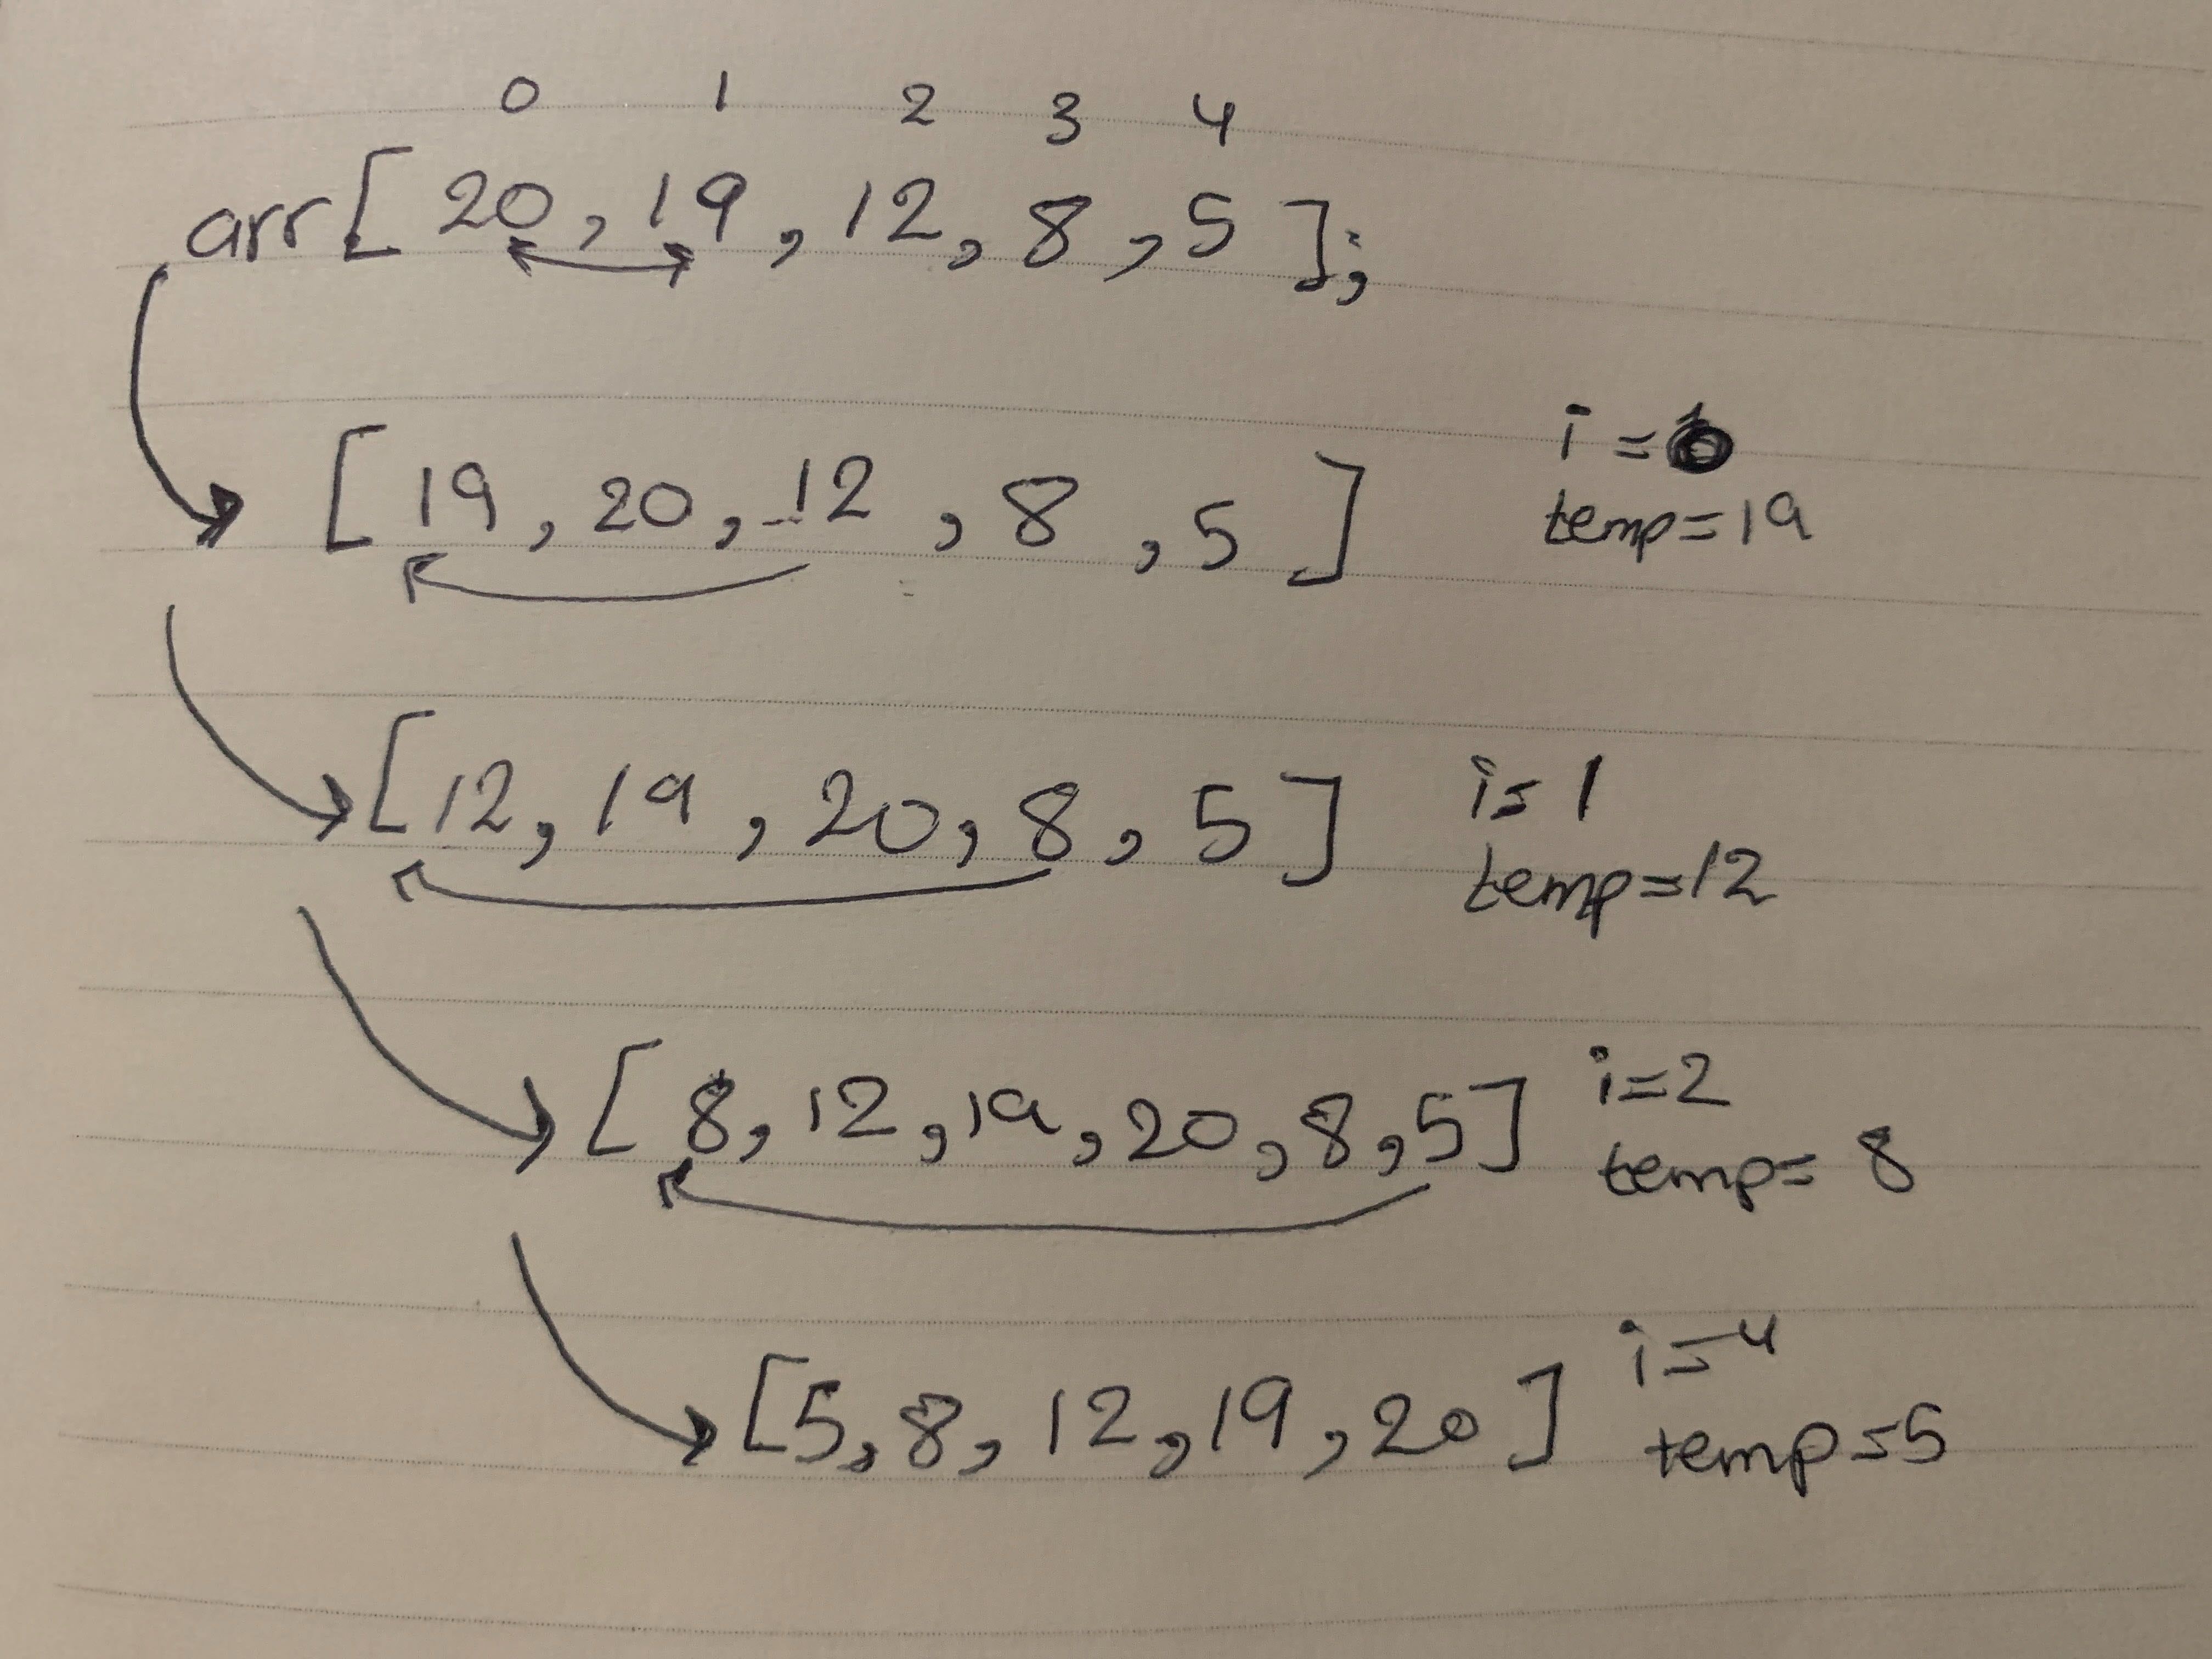 0 1 2 3 4
arr[ 20, 19, 12, 8, 5 ];
[ 19, 20, 12, 8, 5 ] i =
temp=19
[12, 19, 20, 8, 5] i= 1
temp=12
[ 8, 12, 19, 20, 8, 5] i=2
temp= 8
[5, 8, 12, 19, 20] i=4
temp=5